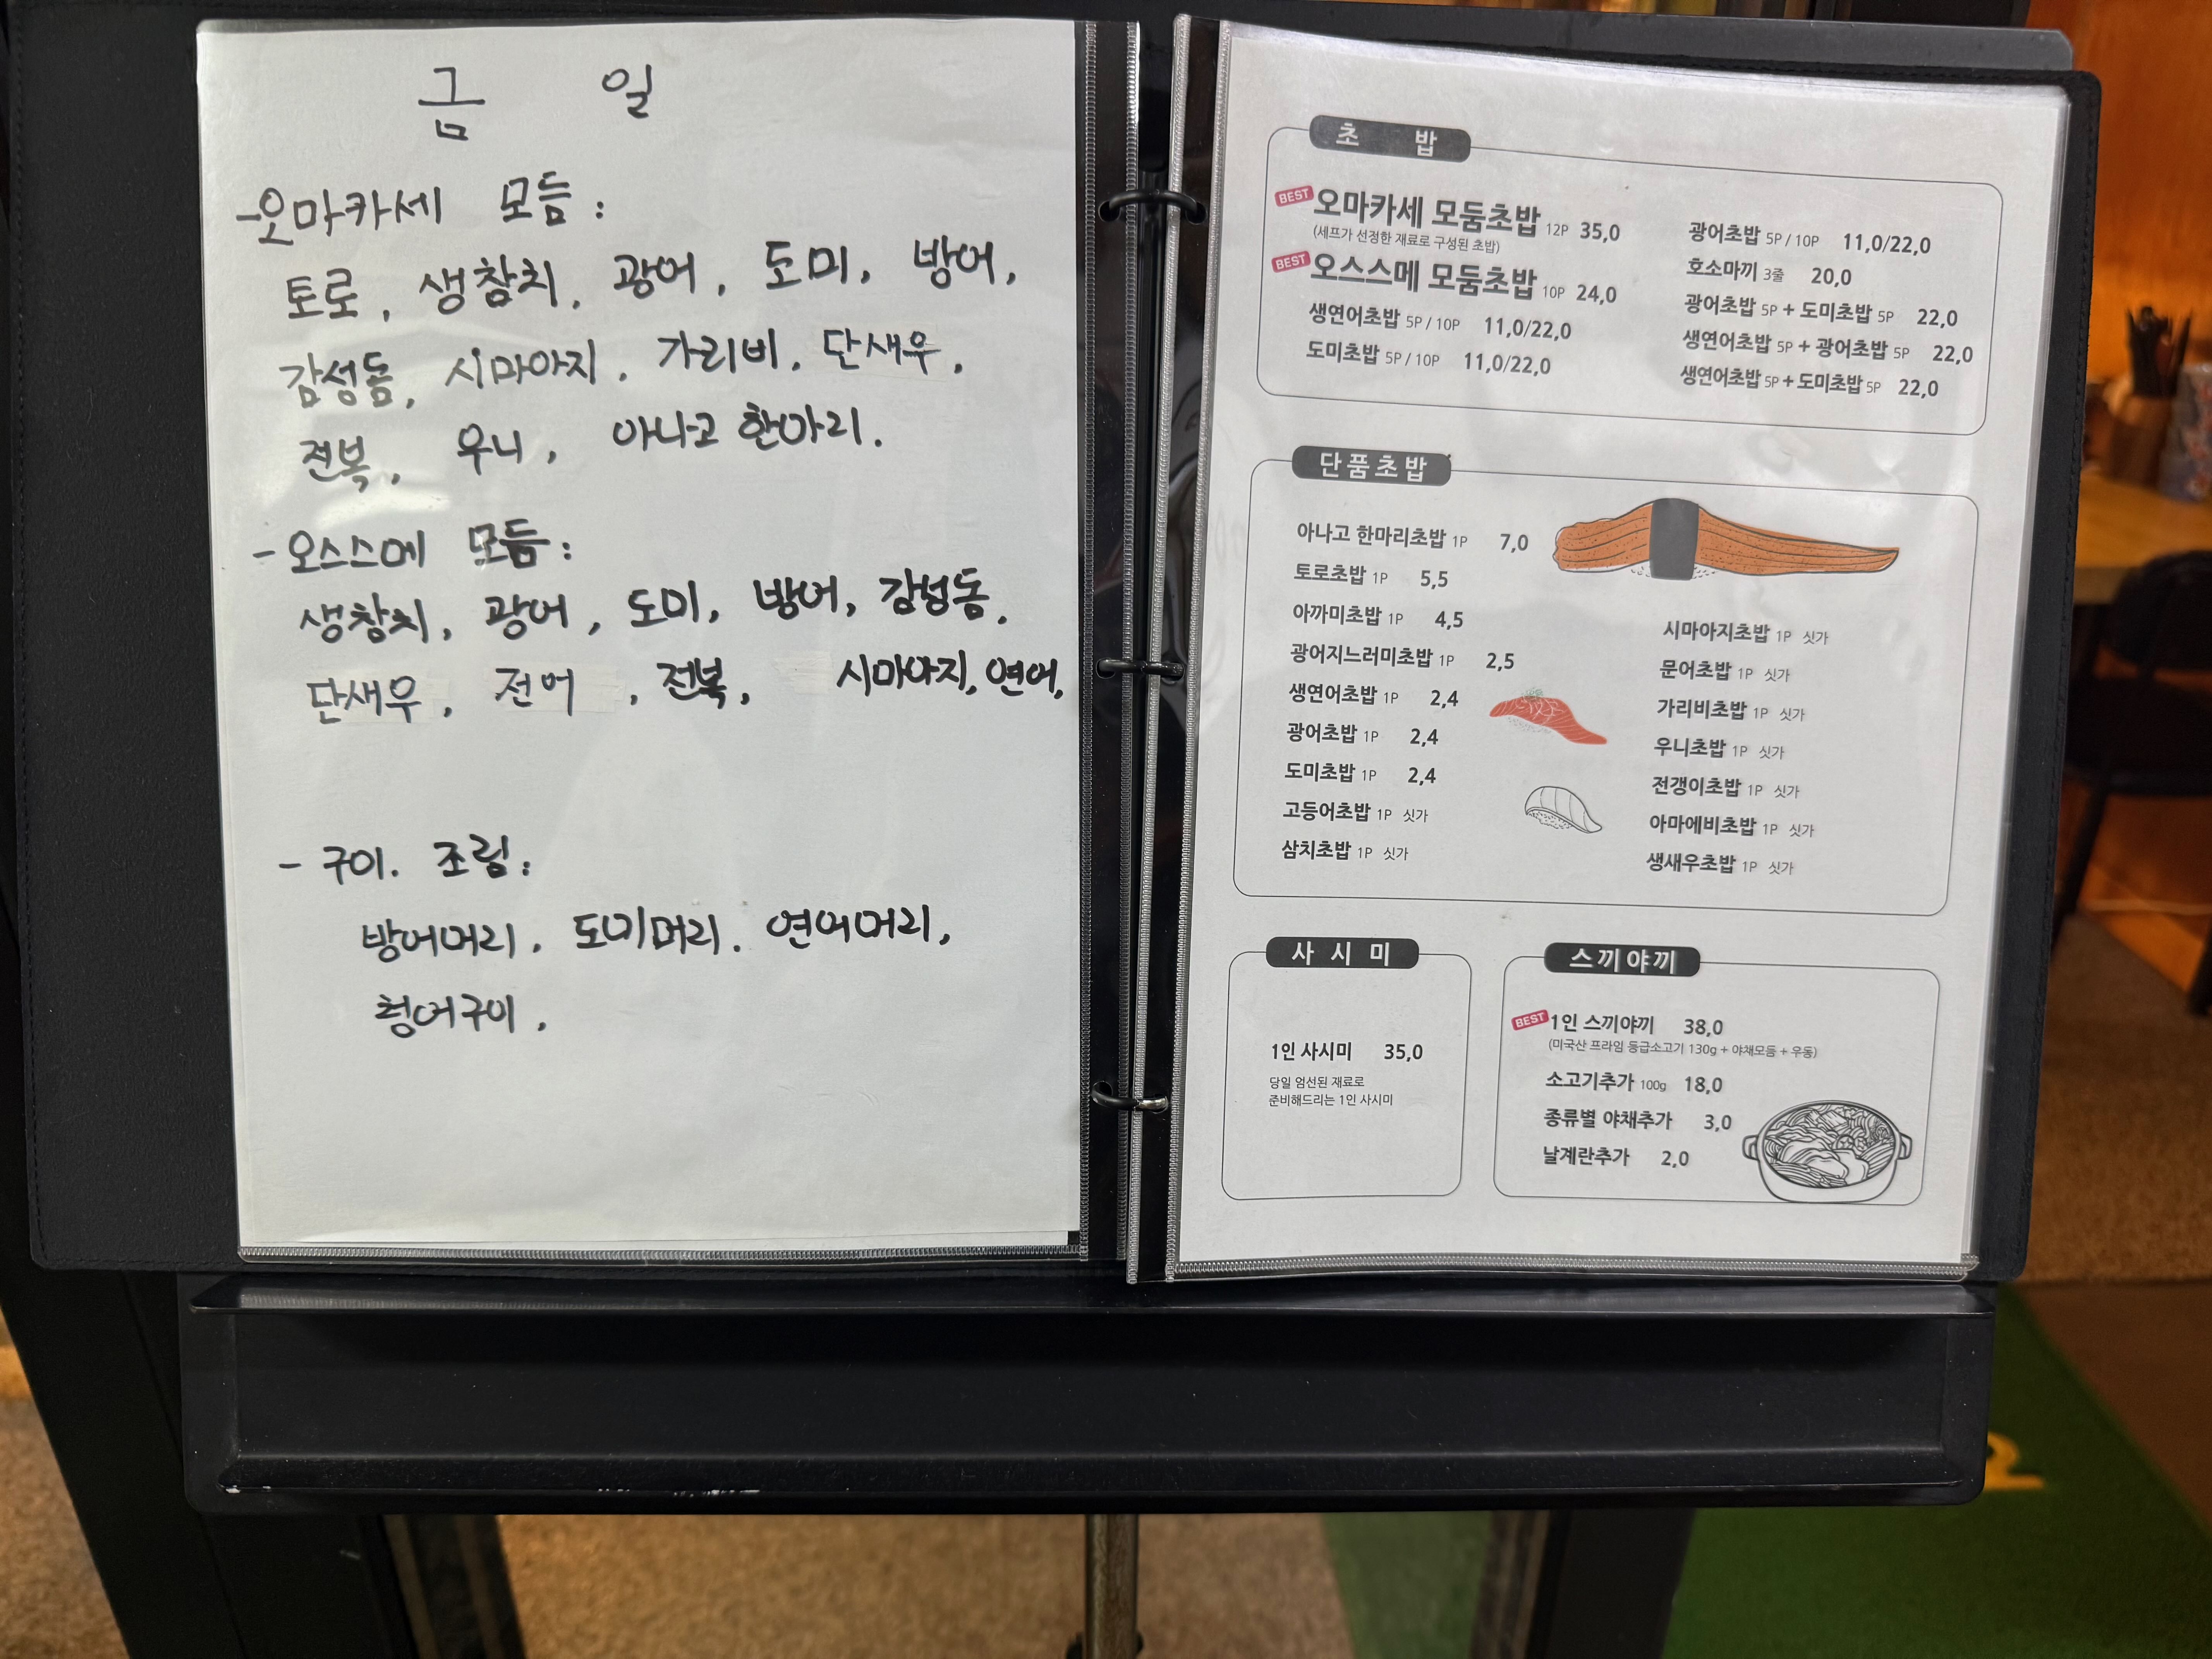 금 일
- 오마카세 모듬 :
토로, 생참치, 광어, 도미, 방어,
감성돔, 시마아지, 가리비, 단새우,
전복, 우니, 아나고 한마리.
- 오스스메 모듬 :
생참치, 광어, 도미, 방어, 감성돔,
단새우, 전어, 전복, 시마아지, 연어,
- 구이. 조림 :
방어머리, 도미머리. 연어머리,
청어구이,
초 밥
BEST 오마카세 모둠초밥 12P 35,0
(세프가 선정한 재료로 구성된 초밥)
BEST 오스스메 모둠초밥 10P 24,0
생연어초밥 5P / 10P 11,0/22,0
도미초밥 5P / 10P 11,0/22,0
광어초밥 5P / 10P 11,0/22,0
호소마끼 3줄 20,0
광어초밥 5P + 도미초밥 5P 22,0
생연어초밥 5P + 광어초밥 5P 22,0
생연어초밥 5P + 도미초밥 5P 22,0
단품초밥
아나고 한마리초밥 1P 7,0
토로초밥 1P 5,5
아까미초밥 1P 4,5
광어지느러미초밥 1P 2,5
생연어초밥 1P 2,4
광어초밥 1P 2,4
도미초밥 1P 2,4
고등어초밥 1P 싯가
삼치초밥 1P 싯가
시마아지초밥 1P 싯가
문어초밥 1P 싯가
가리비초밥 1P 싯가
우니초밥 1P 싯가
전갱이초밥 1P 싯가
아마에비초밥 1P 싯가
생새우초밥 1P 싯가
사 시 미
1인 사시미 35,0
당일 엄선된 재료로
준비해드리는 1인 사시미
스끼야끼
BEST 1인 스끼야끼 38,0
(미국산 프라임 등급소고기 130g + 야채모듬 + 우동)
소고기추가 100g 18,0
종류별 야채추가 3,0
날계란추가 2,0